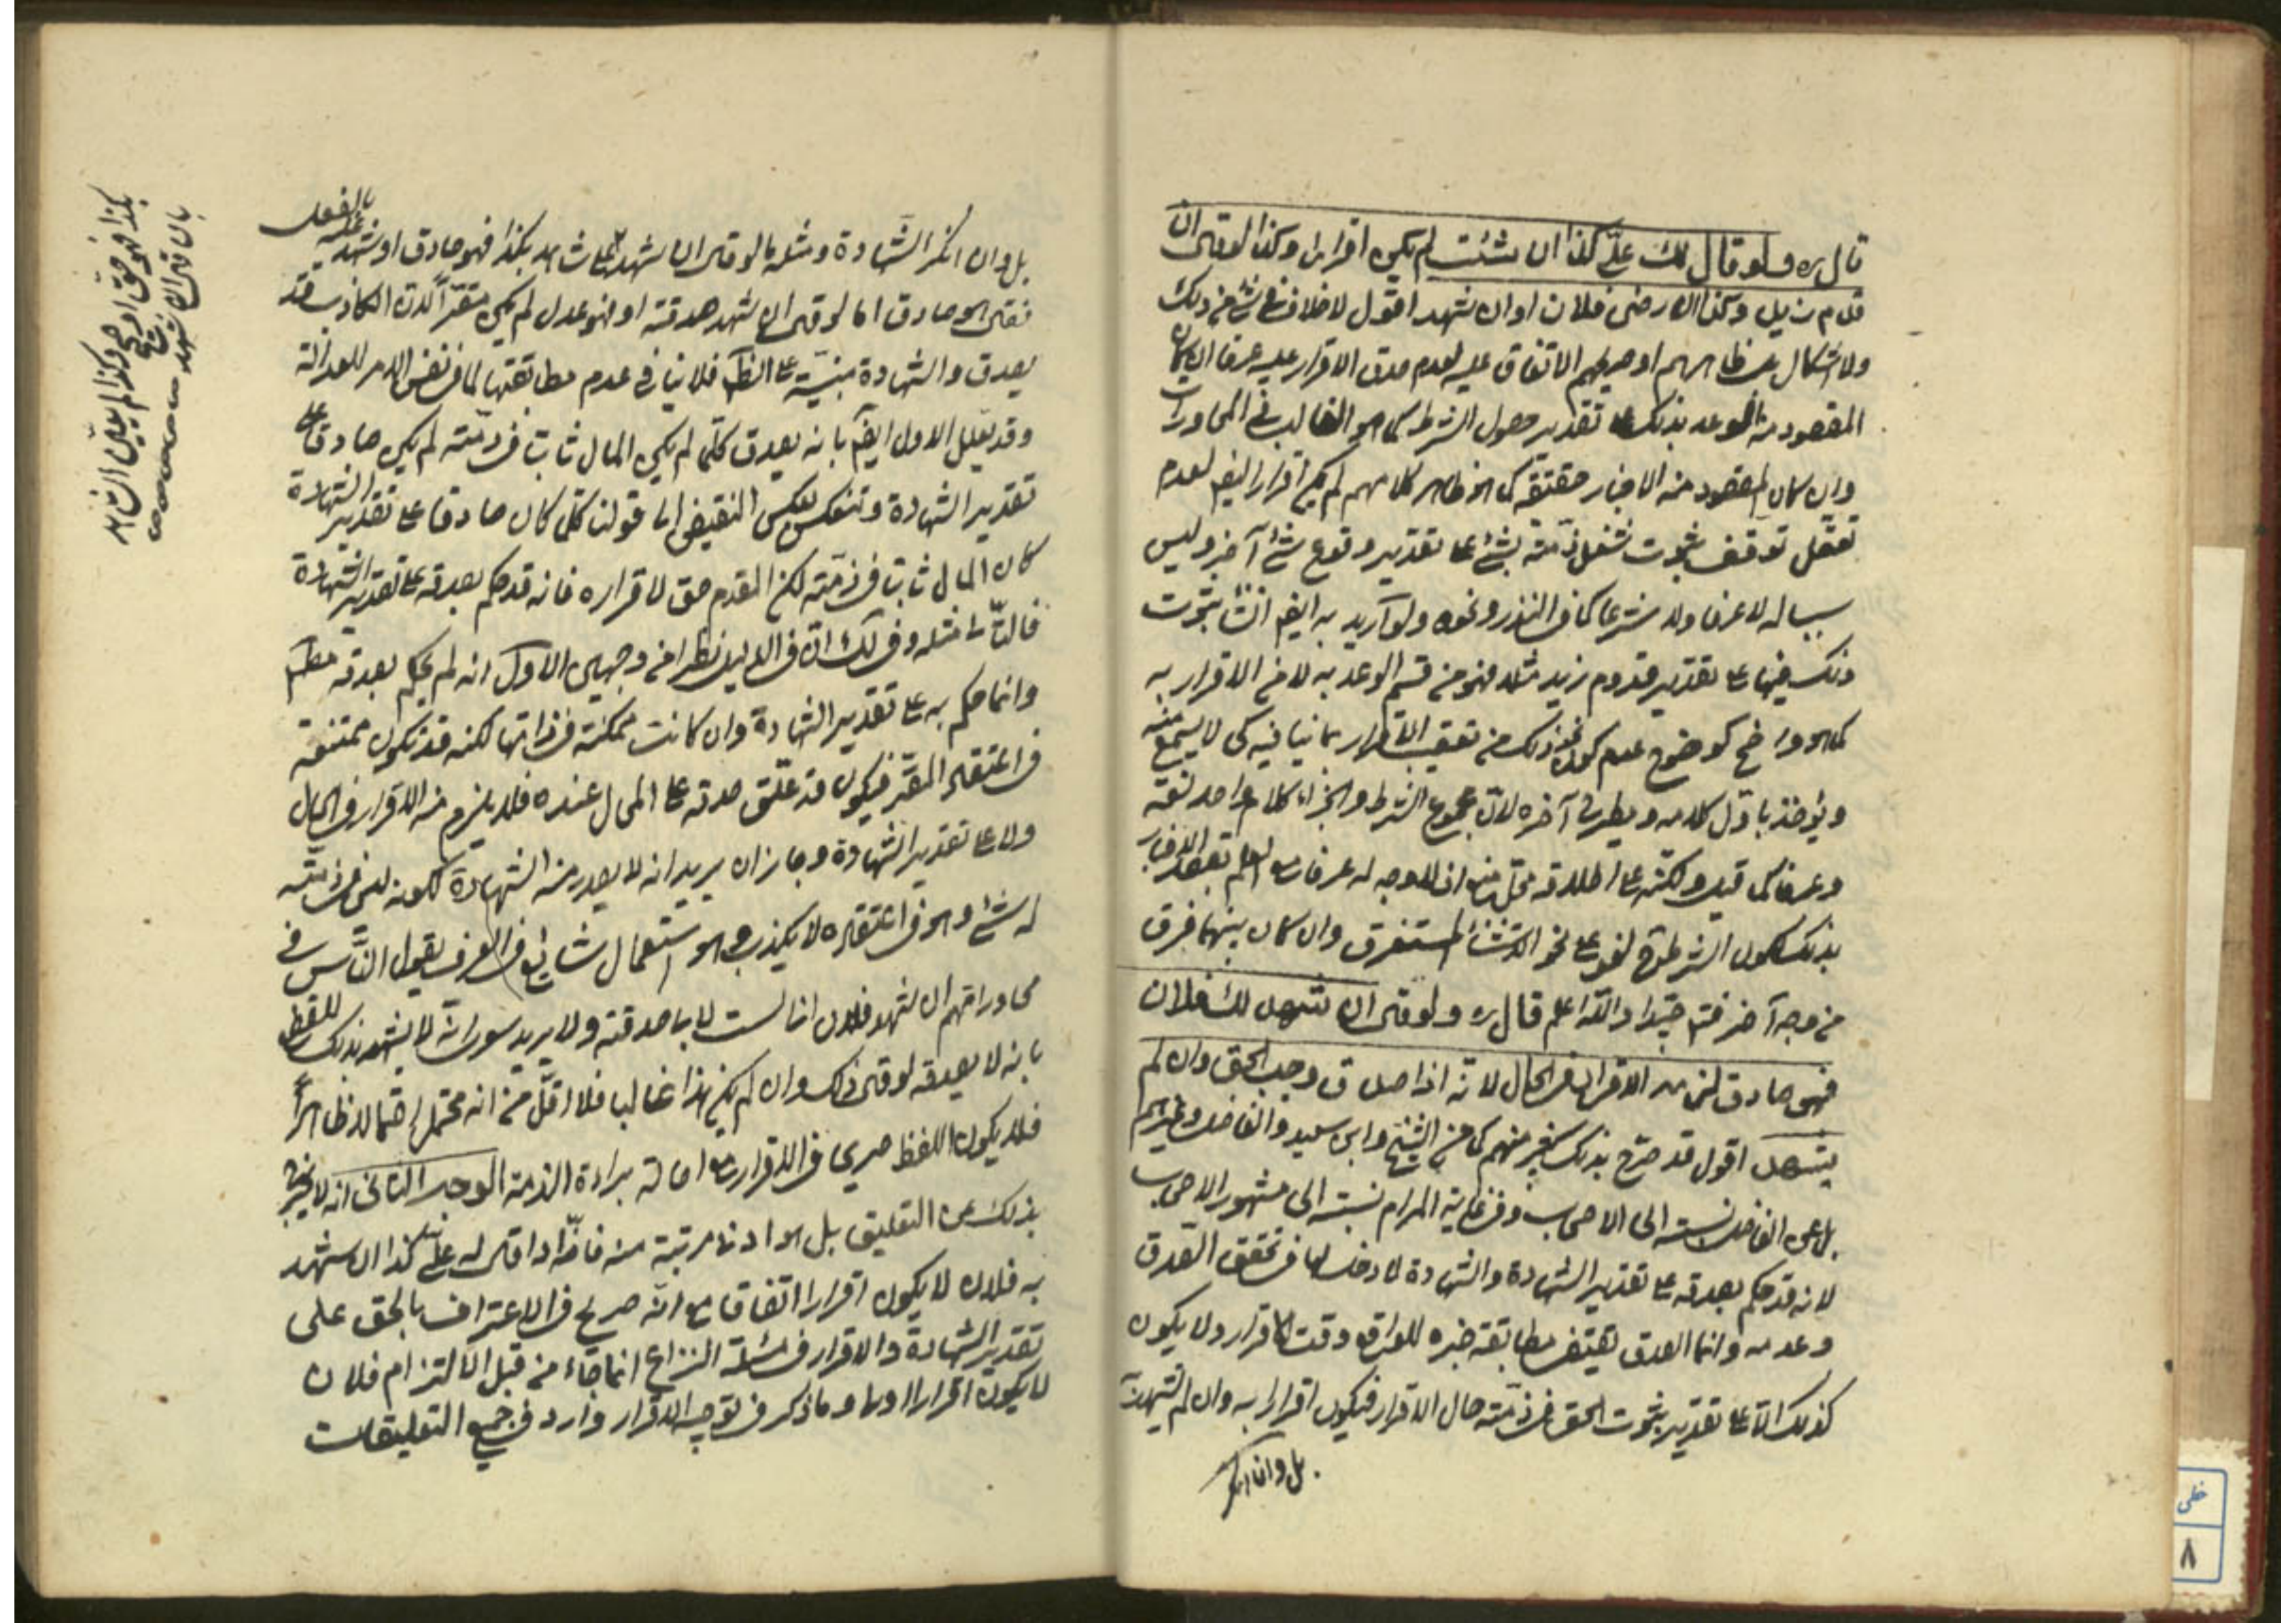 قال ره ولو قال لك علىّ كذا ان شئت لم يكن اقرارا وكذا لو قال ان
قدم زيد وكذا ان رضى فلان او ان شهد اقول لا خلاف فى شئ من ذلك
ولا اشكال بل ظاهرهم او صريحهم الاتفاق عليه لعدم صدق الاقرار عليه عرفا ان كان
المقصود منه الوعد بذلك على تقدير حصول الشرط كما هو الغالب فى المحاورات
وان كان المقصود منه الاخبار حقيقة كما هو ظاهر كلامهم لم يكن اقرارا ايضا لعدم
تعقل توقف ثبوت شغل ذمته بشئ على تقدير وقوع شئ آخر وليس
سببا له لا عرفا ولا شرعا كما فى النذر ونحوه ولو اريد به ايضا انشاء ثبوت
ذلك فيها على تقدير قدوم زيد مثلا فهو من قسم الوعد به لا من الاقرار به
كما هو واضح كوضوح عدم كون ذلك من تعقيب الاقرار بما ينافيه كى لا يسمع منه
ويؤخذ باول كلامه ويطرح آخره لان مجموع الشرط والجزاء كلام واحد لغة
وعرفا كما قيل ولكنه على اطلاقه محل منع اذ لا وجه له عرفا مع العلم بقصد الاخبار
بذلك لكون الشرط لغو على نحو الاستثناء المستغرق وان كان بينهما فرق
من وجه آخر فتدبر جيدا والله اعلم قال ره ولو قال ان شهد لك فلان
فهو صادق لزمه الاقرار فى الحال لانه اذا صدق وجب الحق وان لم
يشهد اقول قد صرح بذلك كثير منهم كما عن الشيخ وابن سعيد والفاضل وغيرهم
بل عن الفاضل نسبته الى الاصحاب وفى غاية المرام نسبته الى مشهور الاصحاب
لانه قد حكم بصدقه على تقدير الشهادة والشهادة لا دخل لها فى تحقق الصدق
وعدمه وانما الصدق يقتضى مطابقة خبره للواقع وقت الاقرار ولا يكون
كذلك الا على تقدير ثبوت الحق فى ذمته حال الاقرار فيكون اقرارا به وان لم يشهد
بل وان انكر
بل وان انكر الشهادة ومثله ما لو قال ان شهد علىّ شاهد بكذا فهو صادق او شهد عليه بالفعل
فقال هو صادق اما لو قال ان شهد صدقته او فهو عدل لم يكن مقرّا لان الكاذب قد
يصدق والشهادة مبنيّة على الظاهر فلا ينافى عدم مطابقتها لما فى نفس الامر للعدالة
وقد يعلل الاول ايضا بانه يصدق كلما لم يكن المال ثابتا فى ذمته لم يكن صادقا على
تقدير الشهادة وتنعكس بعكس النقيض الى قولنا كلما كان صادقا على تقدير الشهادة
كان المال ثابتا فى ذمته لكن المقدم حق لاقراره فانه قد حكم بصدقه على تقدير الشهادة
فالتالى مثله وفى لك ان فى الدليل نظرا من وجهين الاول انه لم يحكم بصدقه مطلقا
وانما حكم به على تقدير الشهادة وان كانت ممكنة فى ذاتها لكنه قد تكون ممتنعة
فى اعتقاد المقر فيكون قد علّق صدقه على المحال عنده فلا يلزم منه الاقرار فى الحال
ولا على تقدير الشهادة وجاز ان يريد انه لا يصدر منه الشهادة لكونه ليس فى ذمته
له شئ وهو فى اعتقاده لا يكذب وهو استعمال شايع فى العرف يقول الناس فى
محاوراتهم ان شهد فلان انى لست لابى صدقته ولا يريد سوى انه لا يشهد بذلك للقطع
بانه لا يصدقه لو قال ذلك وان لم يكن هذا غالبا فلا اقل من انه محتمل احتمالا ظاهرا
فلا يكون اللفظ صريحا فى الاقرار مع اصالة براءة الذمة الوجه الثانى انه لا يخرج
بذلك عن التعليق بل هو ادنى مرتبة منه فانّه اذا قال له علىّ كذا ان شهد
به فلان لا يكون اقرارا اتفاقا مع انّه صريح فى الاعتراف بالحق على
تقدير الشهادة والاقرار فى مسئلة النزاع انما جاء من قبل الالتزام فلان
لا يكون اقرارا اولى وما ذكر فى توجيه الاقرار وارد فى جميع التعليقات
بان قال ان شهد
بكذا فهو حق او صحيح
خطى
٨